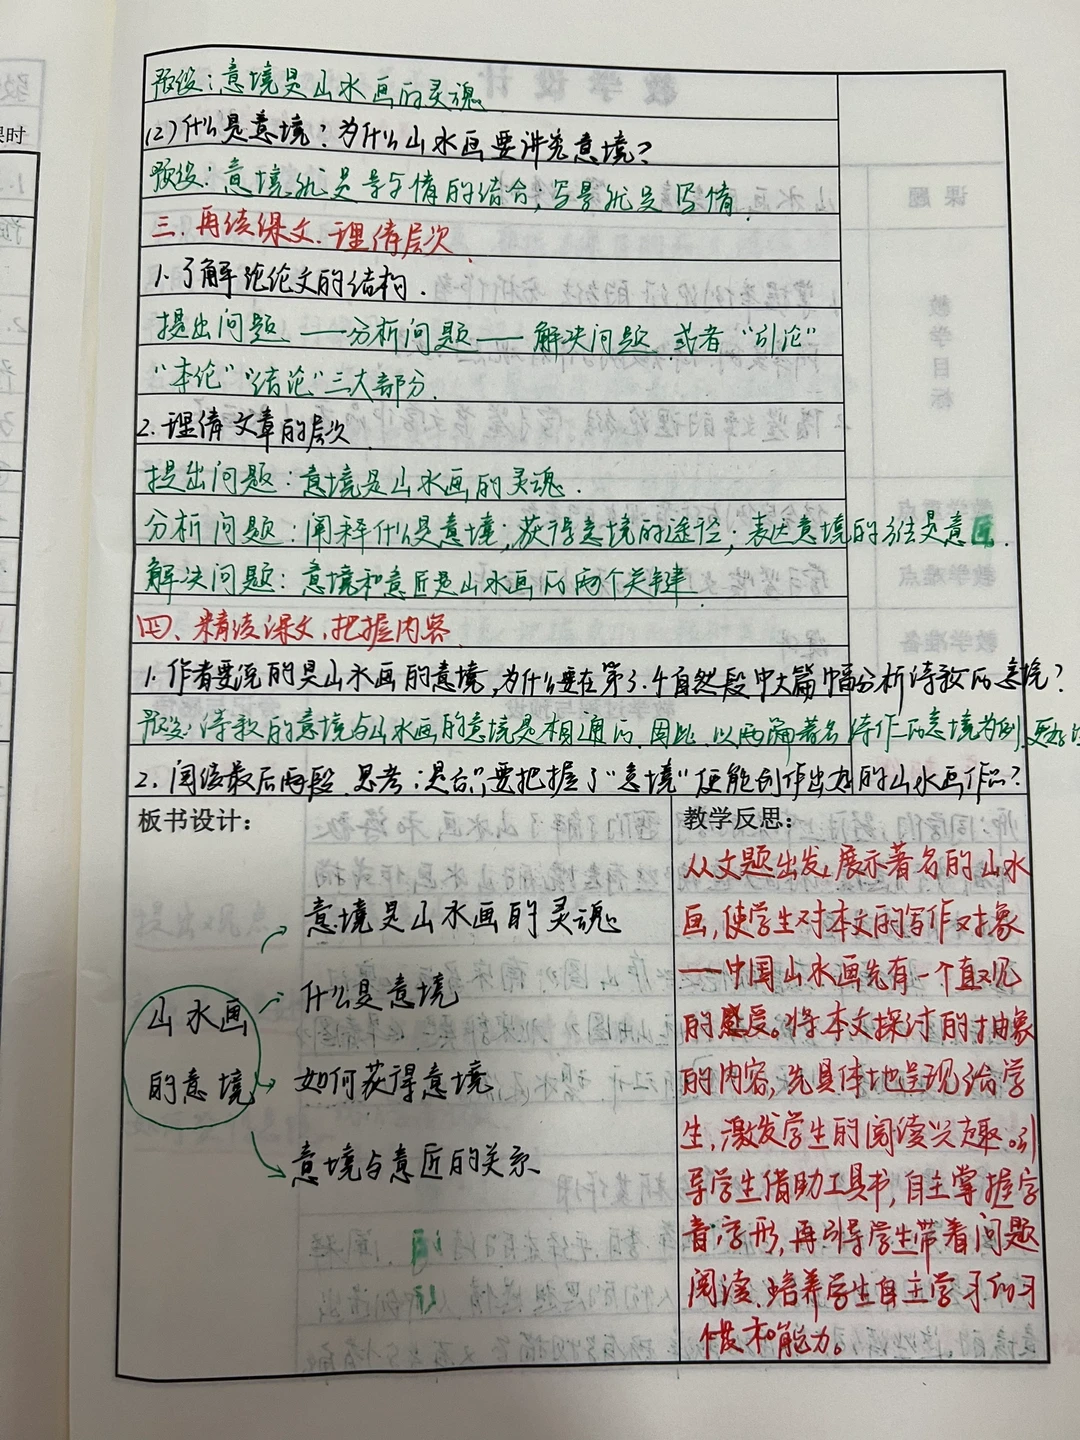 预设:意境是山水画的灵魂
(2)什么是意境?为什么山水画要讲究意境?
预设:意境就是景与情的结合;写景就是写情.
三.再读课文.理清层次.
1.了解论论文的结构.
提出问题——分析问题——解决问题.或者"引论"
"本论""结论"三大部分.
2.理清文章的层次.
提出问题:意境是山水画的灵魂.
分析问题:阐释什么是意境;获得意境的途径;表达意境的方法是意匠.
解决问题:意境和意匠是山水画的两个关键.
四、精读课文,把握内容
1.作者要说的是山水画的意境,为什么要在第3.4自然段中大篇幅分析诗歌的意境?
预设:诗歌的意境与山水画的意境是相通的.因此.以两篇著名诗作的意境为例,更
2.阅读最后两段.思考:是否只要把握了"意境"便能创作出好的山水画作品?
板书设计:
山水画
的意境
意境是山水画的灵魂
什么是意境
如何获得意境
意境与意匠的关系
教学反思:
从文题出发,展示著名的山水
画,使学生对本文的写作对象
——中国山水画先有一个直观
的感受。将本文探讨的抽象
的内容,先具体地呈现给学
生,激发学生的阅读兴趣。引
导学生借助工具书,自主掌握字
音字形,再引导学生带着问题
阅读.培养学生自主学习的习
惯和能力。
课时